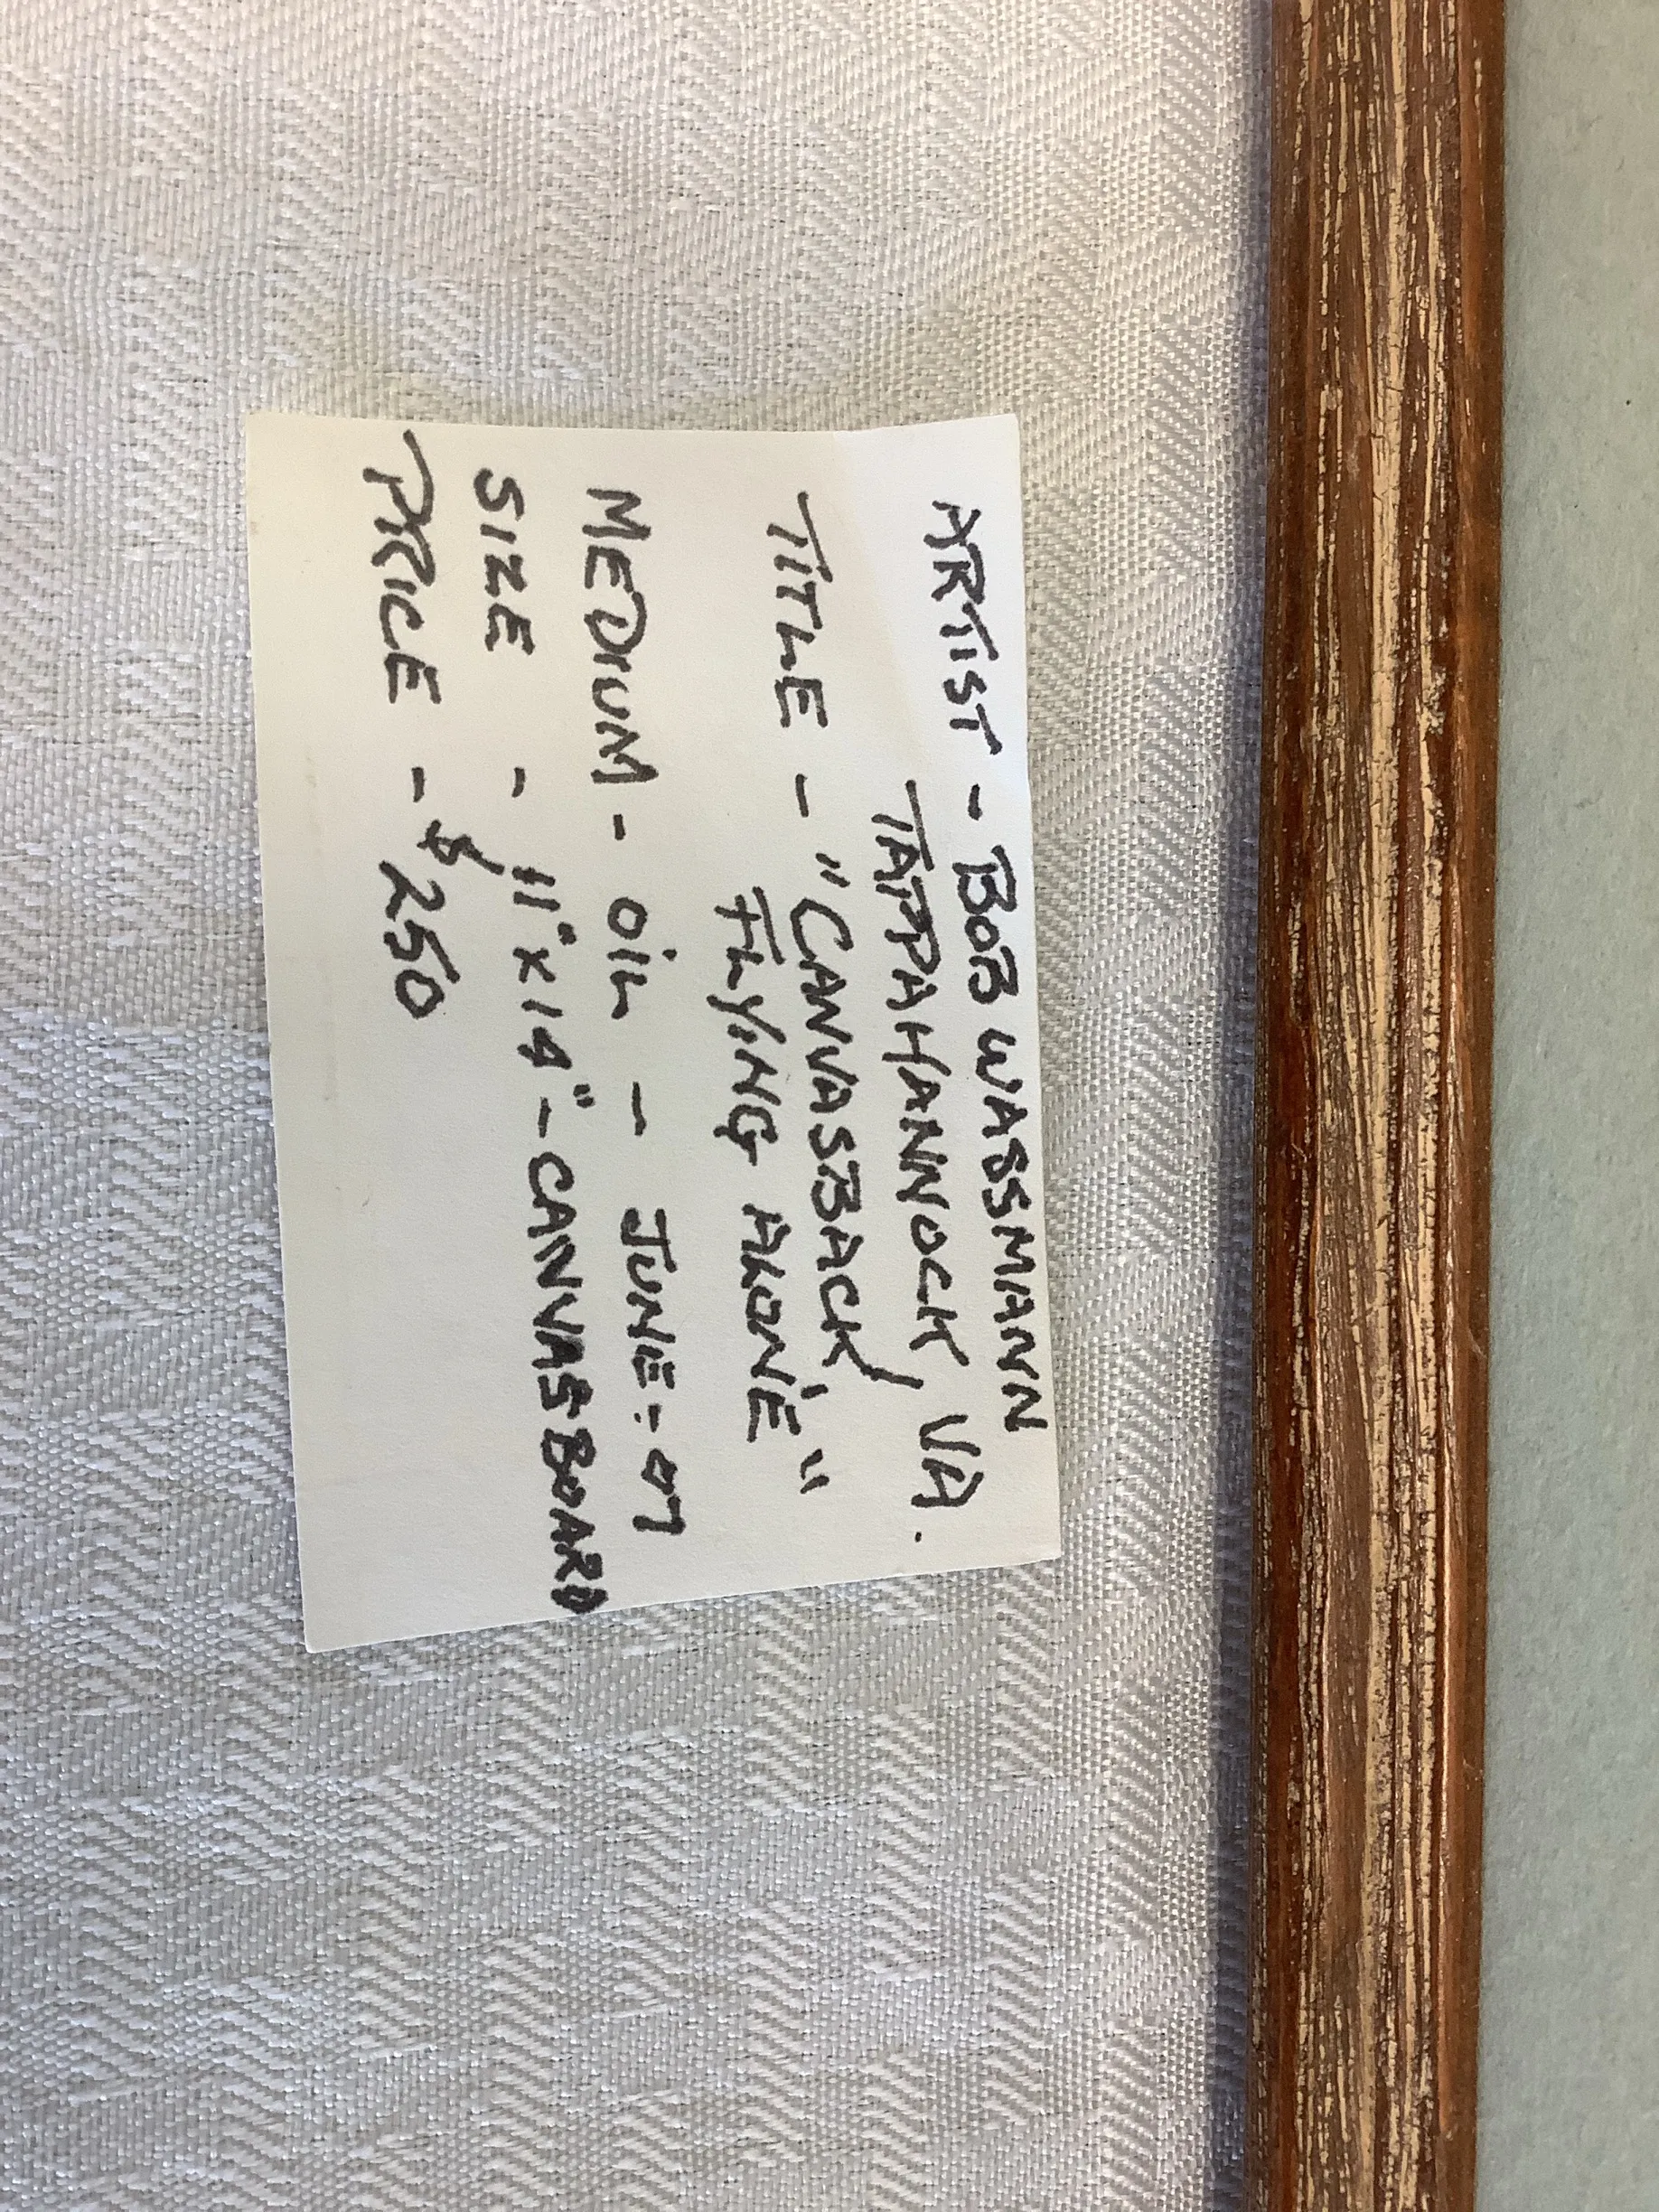 ARTIST - BOB WASSMANN
TAPPAHANNOCK, VA.
TITLE - "CANVASBACK,
FLYING ALONE"
MEDIUM - OIL - JUNE - 07
SIZE - 11" x 14" - CANVASBOARD
PRICE - $250